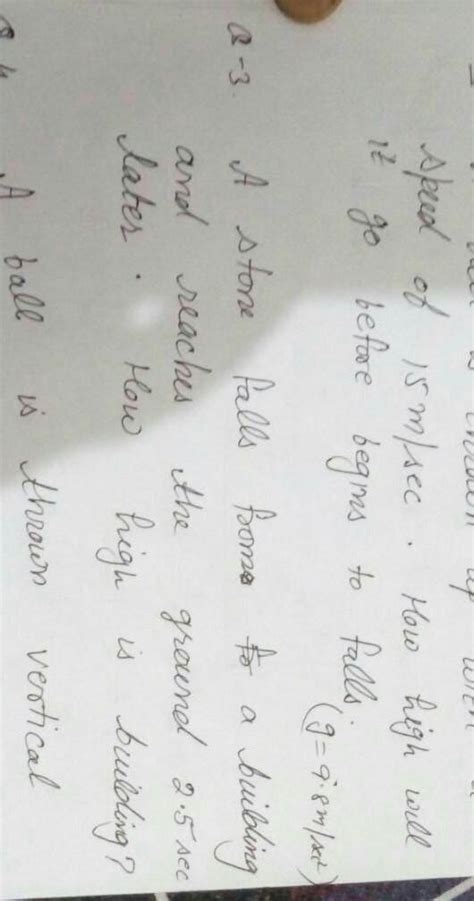 speed of 15 m/sec. How high will
it go before begins to falls.
(g=9.8m/sec²)
Q-3. A stone falls from a building
and reaches the ground 2.5 sec
later. How high is building?
A ball is thrown vertical